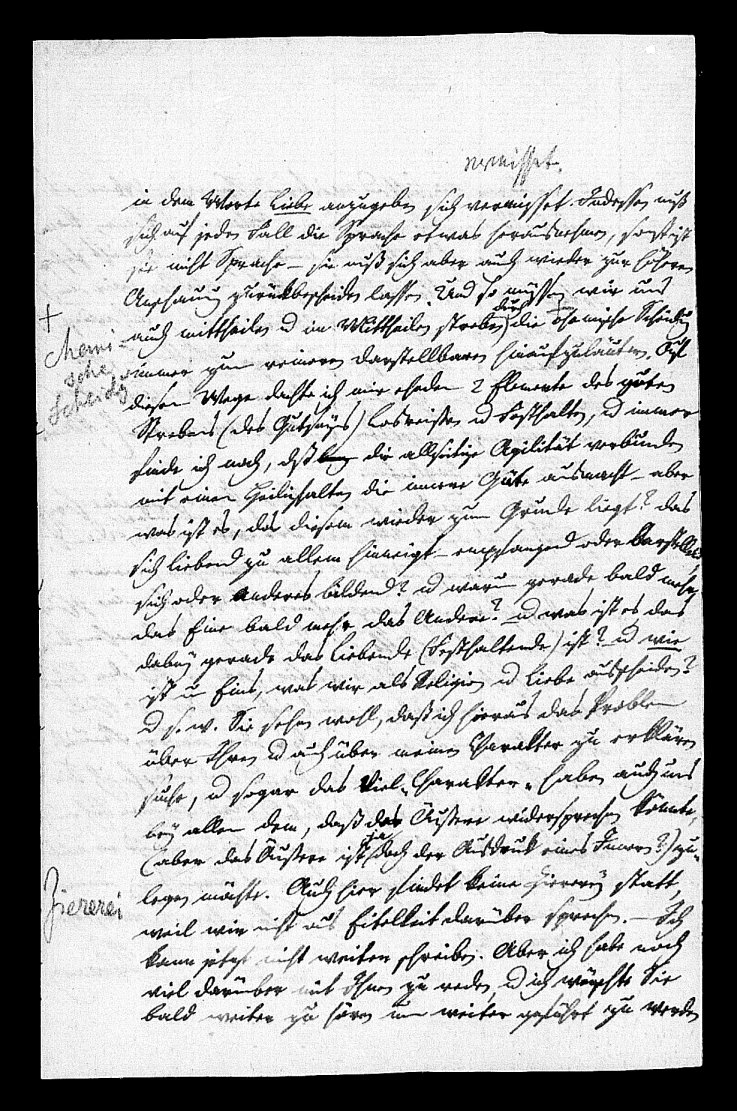 vermisset.
in dem Worte Liebe anzugeben sich vermisset. Indessen muß
sich auf jeden Fall die Sprache etwas herausnehmen, sonst ist
sie nicht Sprache – sie muß sich aber auch wieder zur höheren
Anschauung zurückbescheiden lassen. Und so müssen wir uns
auch mittheilen u in Mittheilen streben durch die chemische Scheidung
+
chemi-
sche
Scheidg
immer zum reineren darstellbaren hinaufzuläutern. Auf
diesem Wege dachte ich mir ehedem 2 Elemente des guten
Strebens (des Gutseyns) Losreissen u Festhalten, u immer
finde ich noch, daß die allseitige Agilität verbunden
mit einem Heilighalten die innere Güte ausmacht – aber
was ist es, das diesem wieder zum Grunde liegt? das
sich liebend zu allem hinneigt – empfangend oder darstellend
sich oder Anderes bildend? u warum gerade bald mehr
das Eine bald mehr das Andere? u was ist es das
dabey gerade das Liebende (Festhaltende) ist? u wie
ist in Eins, was wir als Religion u Liebe ausscheiden?
u s. w. Sie sehen wohl, daß ich hieraus das Problem
über Ihren u auch über meinen Charakter zu erklären
suche, u sogar das Viel-Charakter-haben auch uns
bey allem dem, daß das Äussere widersprechen könnte,
(aber das Äussere ist ja doch der Ausdruk eines Innern?) zu-
legen möchte. Auch hier findet keine Ziererey statt,
Ziererei
weil wir nicht aus Eitelkeit darüber sprechen. – Ich
kann jetzt nicht weiter schreiben. Aber ich habe noch
viel darüber mit Ihnen zu reden, u ich wünschte Sie
bald weiter zu hören um weiter geführt zu werden